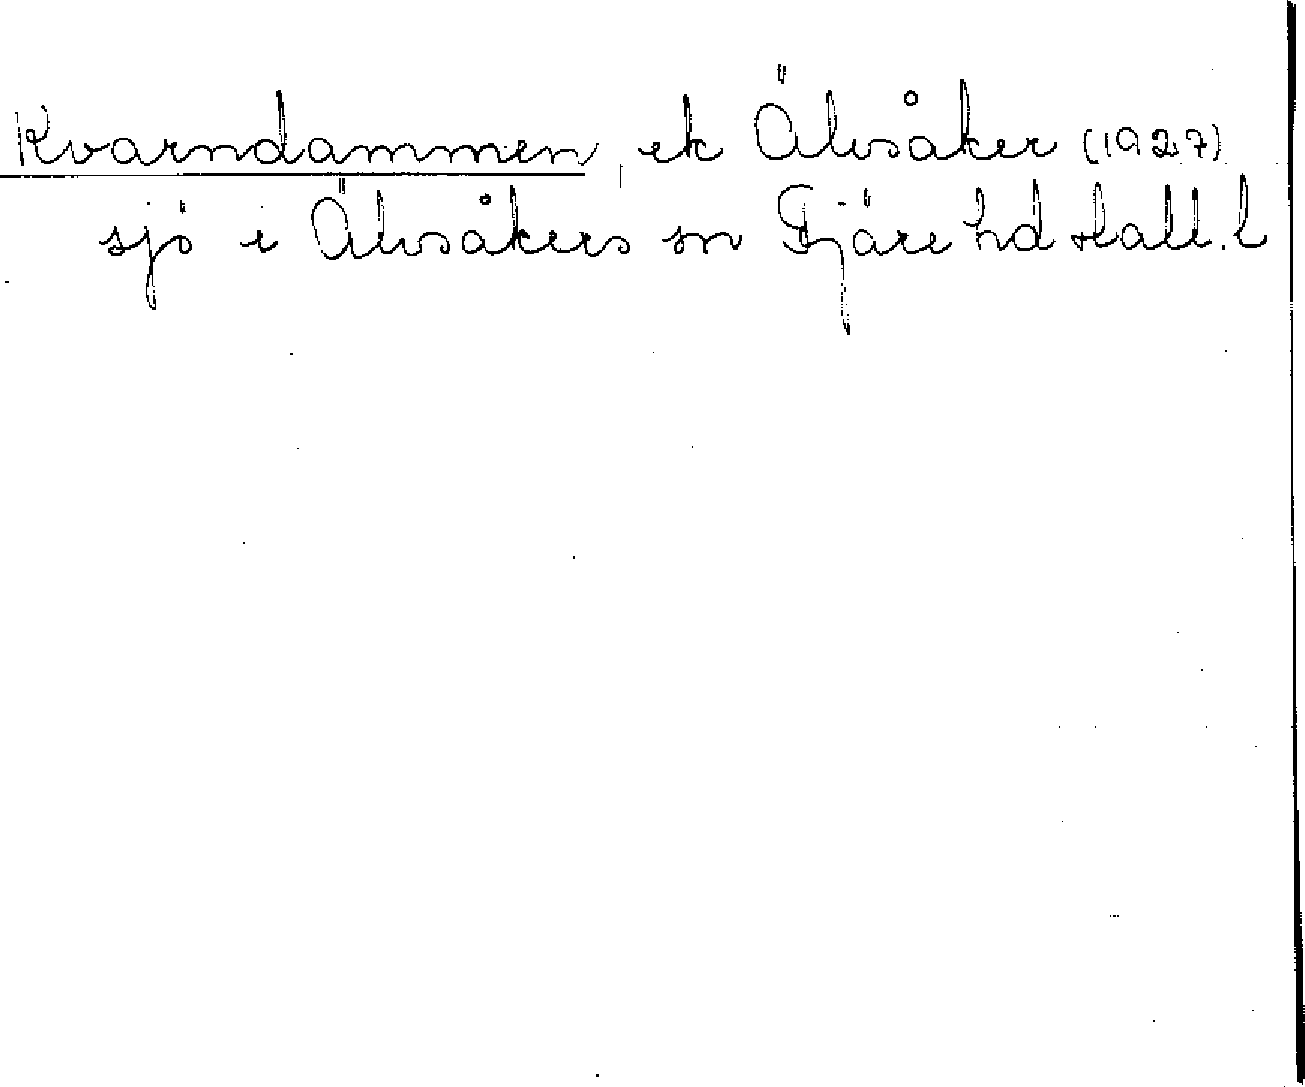 Kvarndammen, ek Älvsåker (1927)
sjö i Älvsåkers sn Fjäre hd Hall. l